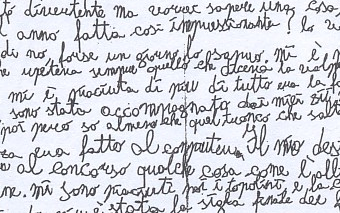 to divertente ma vorrei sapere una cosa
anno fatta così impressionante? Io v
di no, forse un giorno lo saprò. mi è
che ripeteva sempre quello che diceva la
mi è piaciuta di più di tutto era la
sono stata accompagnata dai miei
poi perso so almeno che quel tuono che
era fatto al computer. Il mio des
al concorso qualche cosa come l'
ne. mi sono piaciuti poi i topolini e la c
è stata la sigla finale del